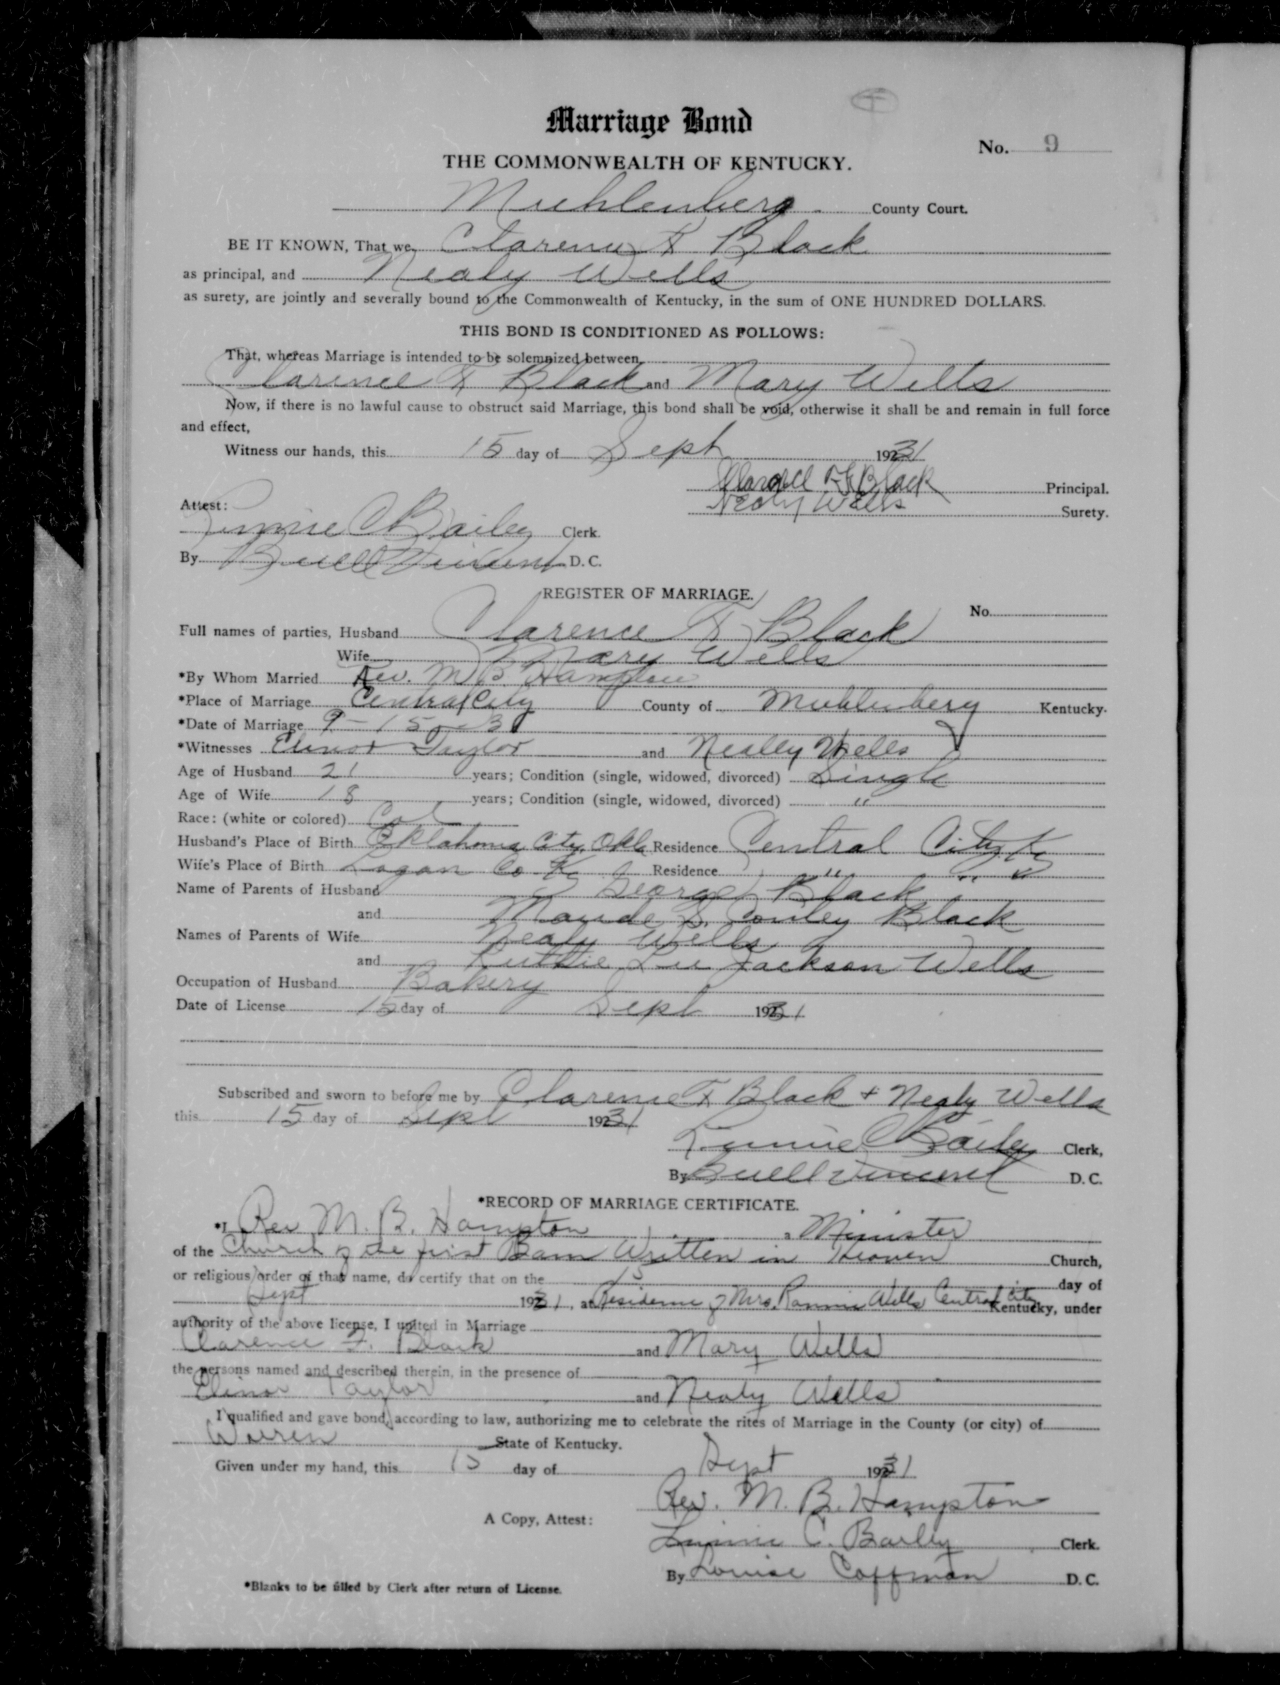 Marriage Bond
No. 9
THE COMMONWEALTH OF KENTUCKY.
Muhlenberg County Court.
BE IT KNOWN, That we Clarence F Black
as principal, and Nealy Wells
as surety, are jointly and severally bound to the Commonwealth of Kentucky, in the sum of ONE HUNDRED DOLLARS.
THIS BOND IS CONDITIONED AS FOLLOWS:
That, whereas Marriage is intended to be solemnized between
Clarence F Black and Mary Wells
Now, if there is no lawful cause to obstruct said Marriage, this bond shall be void, otherwise it shall be and remain in full force
and effect,
Witness our hands, this 15 day of Sept 1931
Clarence F Black Principal.
Attest: Nealy Wells Surety.
C Bailey Clerk.
By Buell Vincent D.C.
REGISTER OF MARRIAGE.
No.
Full names of parties, Husband Clarence F Black
Wife Mary Wells
*By Whom Married Rev. M B Hampton
*Place of Marriage Central City County of Muhlenberg Kentucky.
*Date of Marriage 9-15-3
*Witnesses Elinor Taylor and Nealy Wells
Age of Husband 21 years; Condition (single, widowed, divorced) Single
Age of Wife 18 years; Condition (single, widowed, divorced) "
Race: (white or colored) Col
Husband's Place of Birth Oklahoma City, Okla Residence Central City Ky
Wife's Place of Birth Logan Co. Ky Residence " " "
Name of Parents of Husband George Black
and Maude S. Conley Black
Names of Parents of Wife Nealy Wells
and Ruthie Lee Jackson Wells
Occupation of Husband Bakery
Date of License 15 day of Sept 1931
Subscribed and sworn to before me by Clarence F Black + Nealy Wells
this 15 day of Sept 1931
C Bailey Clerk,
By Buell Vincent D.C.
*RECORD OF MARRIAGE CERTIFICATE.
*I Rev M. B. Hampton, a Minister
of the Church of the first Born Written in Heaven Church,
or religious order of that name, do certify that on the 15 day of
Sept 1931, at Residence of Mrs. Wells Central City Kentucky, under
authority of the above license, I united in Marriage
Clarence F. Black and Mary Wells
the persons named and described therein, in the presence of
Elinor Taylor and Nealy Wells
I qualified and gave bond, according to law, authorizing me to celebrate the rites of Marriage in the County (or city) of
Warren State of Kentucky.
Given under my hand, this 15 day of Sept 1931
Rev. M. B. Hampton
A Copy, Attest:
C. Bailey Clerk.
By Louise Coffman D.C.
*Blanks to be filled by Clerk after return of License.